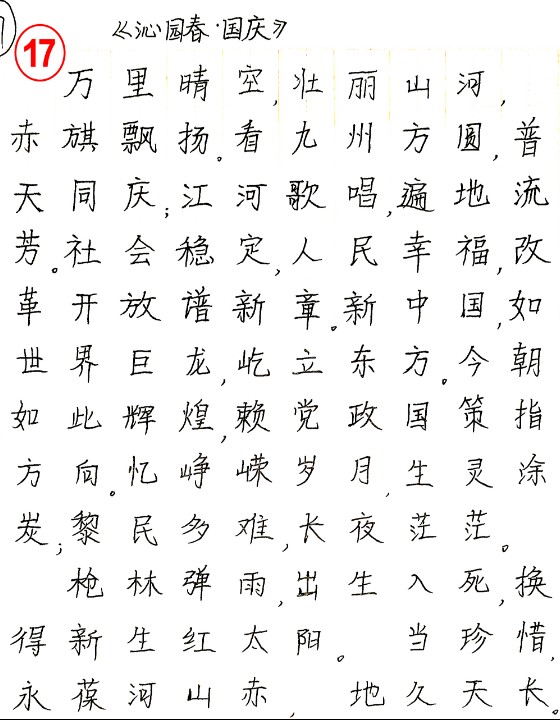 《沁园春·国庆》
17
万里晴空,壮丽山河,
赤旗飘扬。看九州方圆,普
天同庆;江河歌唱,遍地流
芳。社会稳定,人民幸福,改
革开放谱新章。新中国,如
世界巨龙,屹立东方。今朝
如此辉煌,赖党政国策指
方向。忆峥嵘岁月,生灵涂
炭;黎民多难,长夜茫茫。
枪林弹雨,出生入死,换
得新生红太阳。 当珍惜,
永葆河山赤, 地久天长。